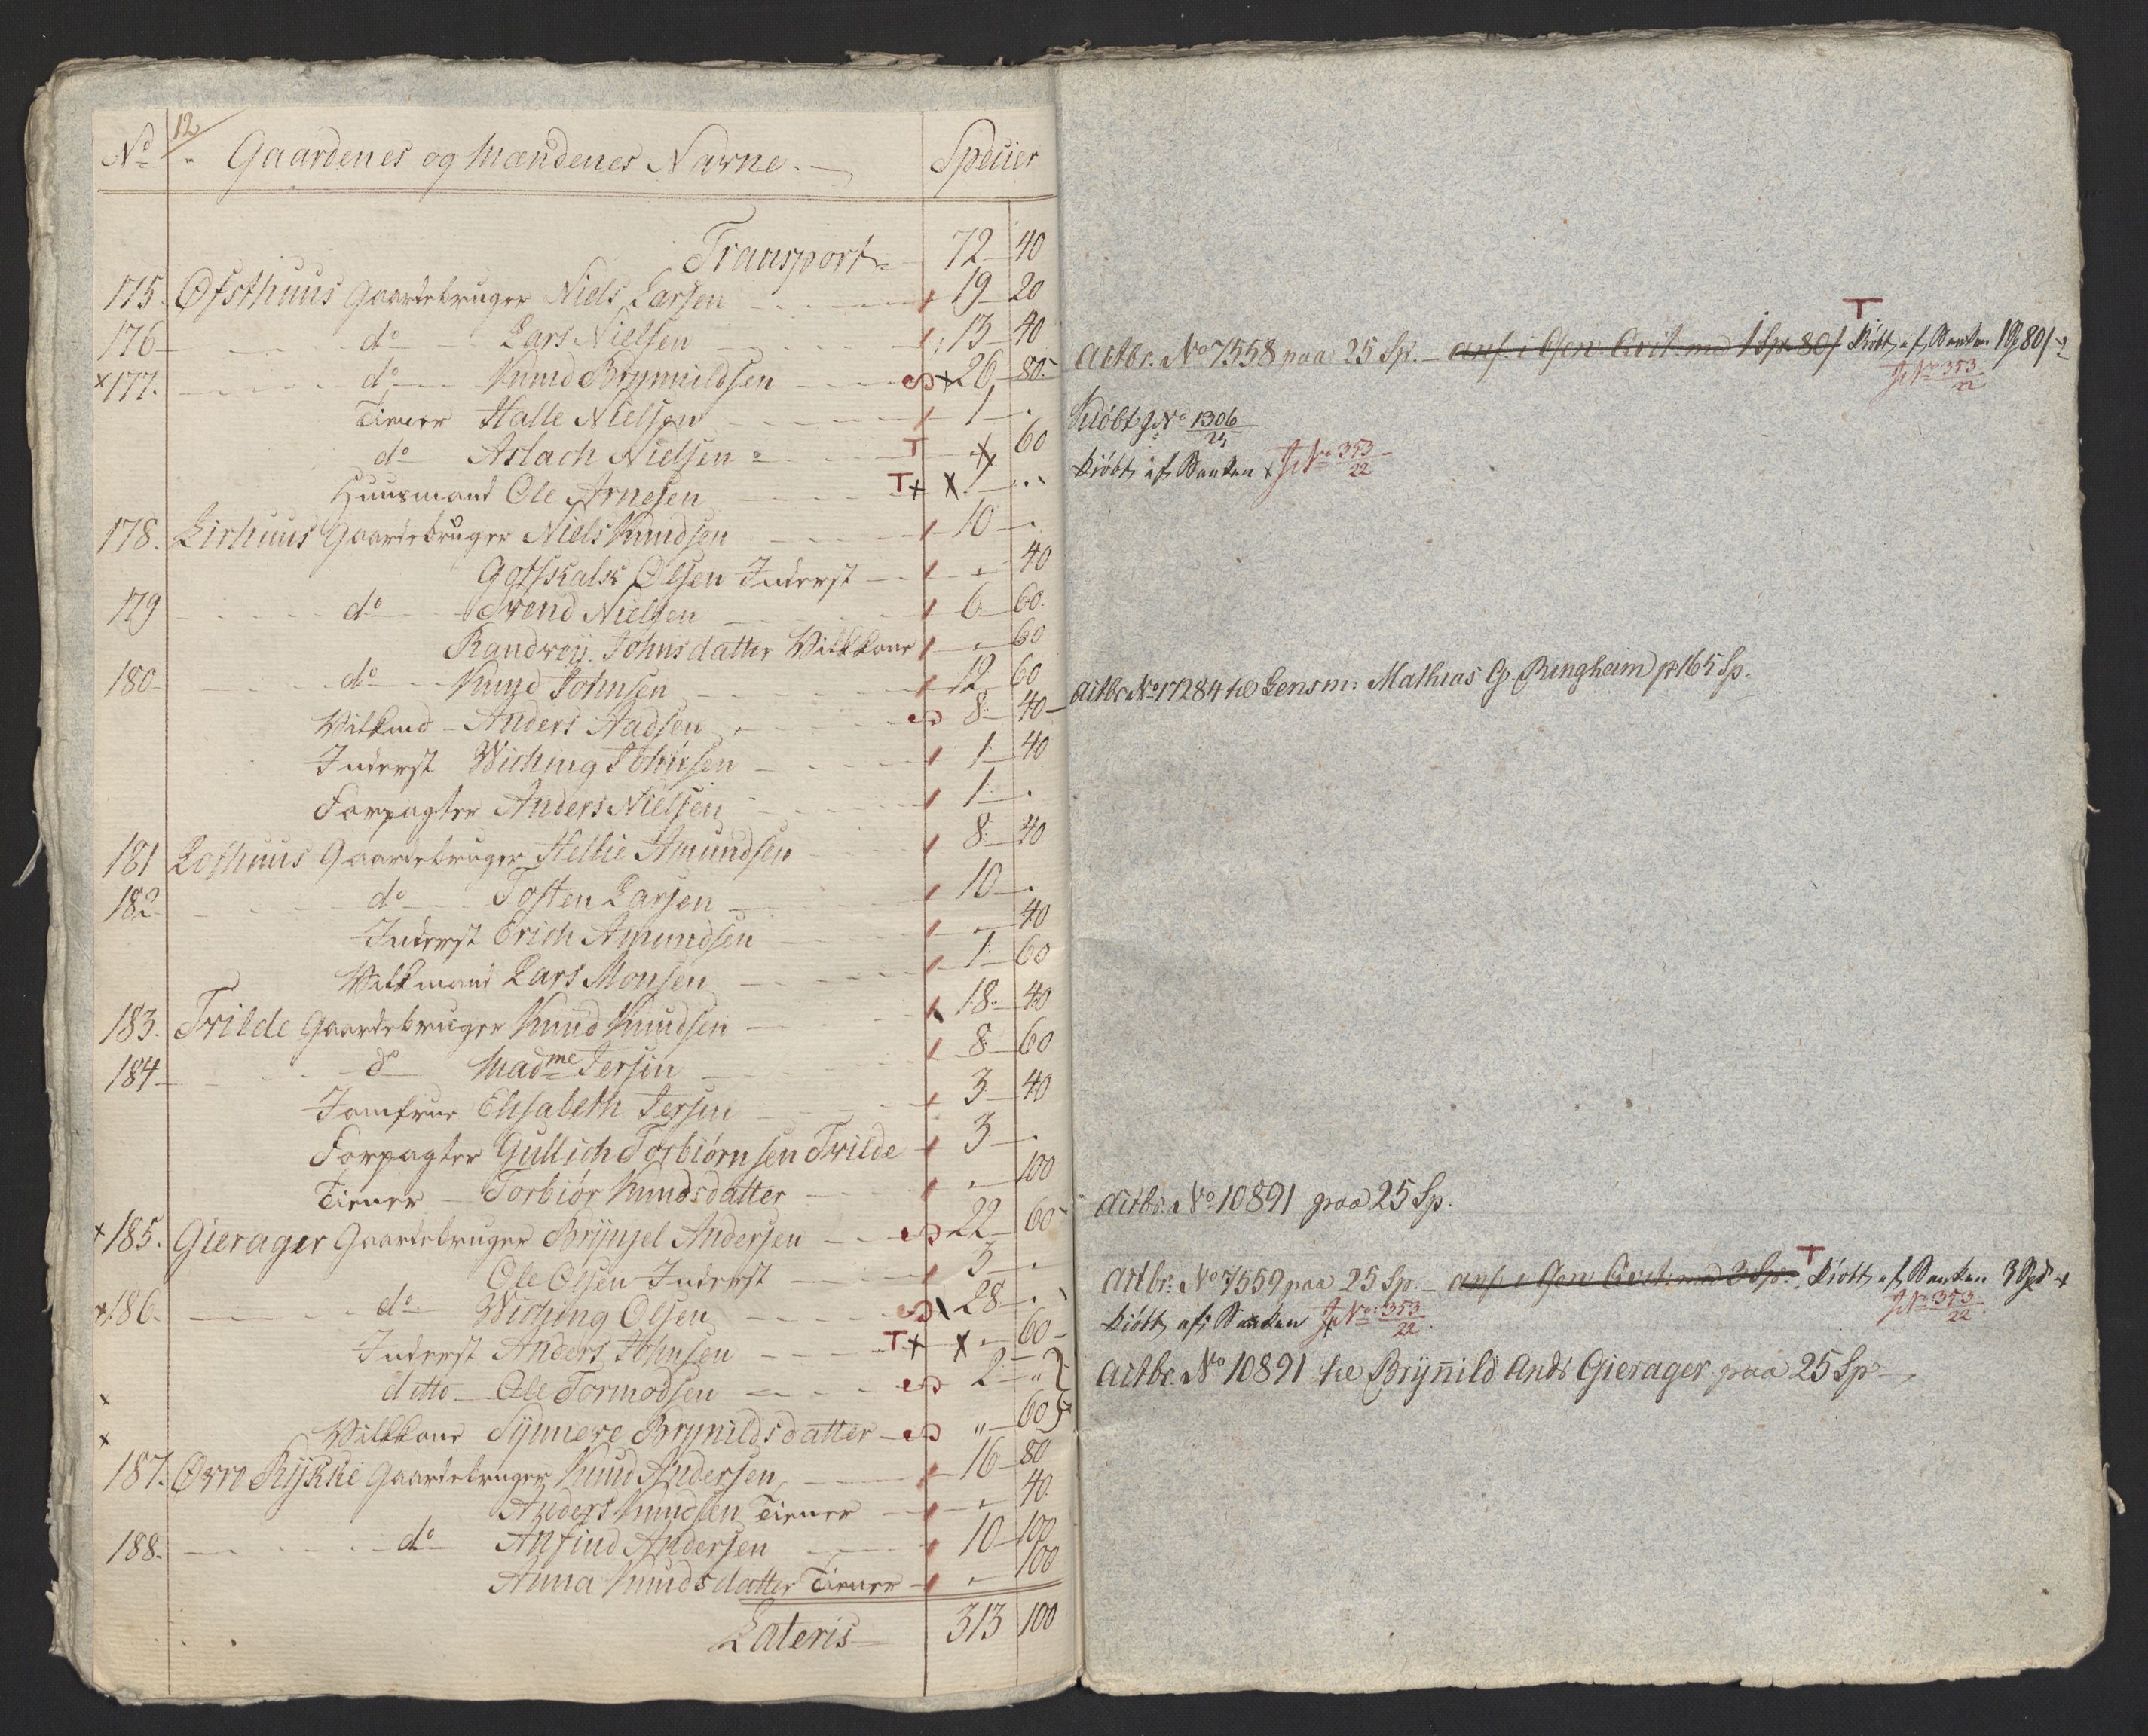 12
No Gaardenes og Mændenes Navne. Specier
Transport 72 40
175 Ofsthuus Gaardebruger Niels Larsen 19 20
176 do Lars Nielsen 13 40
x 177. do Knud Brynnildsen x 26 80
Tiener Halle Nielsen 1
do Aslach Nielsen T 60
Huusmand Ole Arnesen T x x 1
178. Lirhuus Gaardebruger Niels Knudsen 10
Gotskalk Olsen Inderst 40
179 do Svend Nielsen 6 60
Randvey Johnsdatter Vilkkone 60
180 do Knud Johnsen 12 60
Vilkmd Anders Aadsen 8 40
Inderst Wiching Johnsen 1 40
Forpagter Anders Nielsen 1
181 Lofthuus Gaardebruger Hellie Amundsen 8 40
182 do Tosten Larsen 10
Inderst Erich Amundsen 40
Vilkmand Lars Monsen 1 60
183. Tvilde Gaardebruger Knud Knudsen 18 40
184 do Madme Jersin 8 60
Jomfrue Elisabeth Jersin 3 40
Forpagter Gullich Torbiørnsen Tvilde 3
Tiener Torbiør Knudsdatter 100
x 185. Gierager Gaardebruger Brynjel Andersen 22 60
Ole Olsen Inderst 3
x 186. do Wiching Olsen 28
Inderst Anders Johnsen T x x 60
x ditto Ole Tormodsen 2
x Vilkkone Synneve Brynildsdatter 60
187. Øvre Rykke Gaardebruger Knud Andersen 16 80
Anders Knudsen Tiener 40
188. do Anfind Andersen 10 100
Anna Knudsdatter Tiener 100
Lateris 313 100
Actbr. No 7558 paa 25 Sp. anf. i Gen. Qvit. med 1 Sp 80 T Kiøbt af Banken 1 Sp 80
J No 353/22
Kiøbt J No 1306/25
Kiøbt af Banken x J No 353/22
Actbr No 17284 til Lensm: Mathias G. Ringheim p 165 Sp.
Actbr. No 10891 paa 25 Sp.
Actbr. No 7559 paa 25 Sp. anf. i Gen Qvit. med 3 Sp. T Kiøbt af Banken 3 Spd x
J No 353/22
Kiøbt af Banken J No 353/22
Actbr. No 10891 til Brynnild Ands Gierager paa 25 Sp